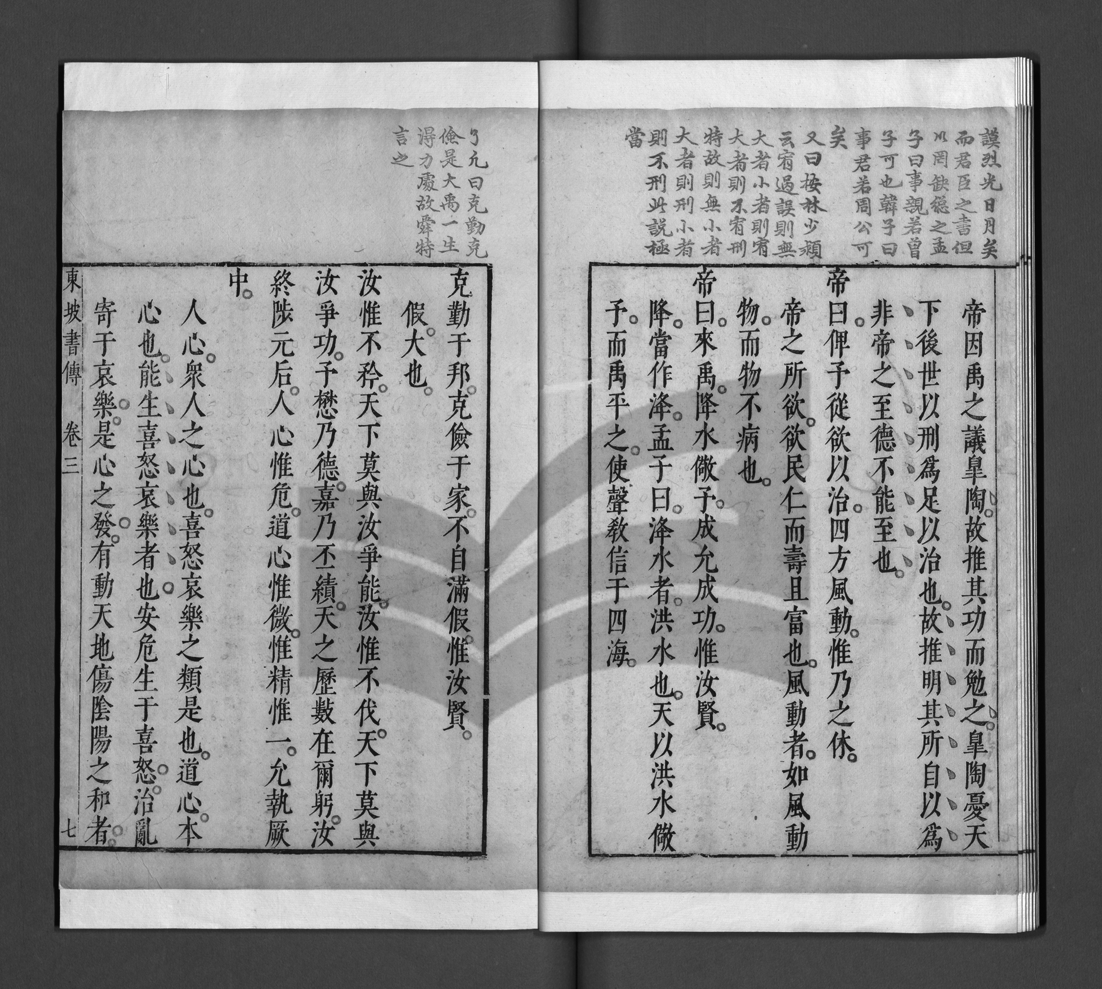 謨烈光日月矣
而君臣之書但
以罔缺爲之孟
子曰事親若曾
子可也韓子曰
事君若周公可
矣
又曰按林少穎
云宥過誤則無
大者小者則宥
大者則不宥刑
特故則無小者
大者則刑小者
則不刑此説極
當
帝因禹之議臯陶。故推其功而勉之。臯陶憂天
下後世以刑爲足以治也。故推明其所自以爲
非帝之至德不能至也。
帝曰。俾予從欲以治。四方風動。惟乃之休。
帝之所欲。欲民仁而壽且富也。風動者。如風動
物。而物不病也。
帝曰。來禹。降水儆予。成允成功。惟汝賢。
降。當作洚。孟子曰。洚水者。洪水也。天以洪水儆
予。而禹平之。使聲敎信于四海。
了凡曰克勤克
儉是大禹一生
得力處故舜特
言之
克勤于邦。克儉于家。不自滿假。惟汝賢。
假。大也。
汝惟不矜。天下莫與汝爭能。汝惟不伐。天下莫與
汝爭功。予懋乃德。嘉乃丕績。天之歷數在爾躬。汝
終陟元后。人心惟危。道心惟微。惟精惟一。允執厥
中。
人心。衆人之心也。喜怒哀樂之類是也。道心。本
心也。能生喜怒哀樂者也。安危生于喜怒。治亂
寄于哀樂。是心之發。有動天地傷陰陽之和者。
東坡書傳 卷三 七